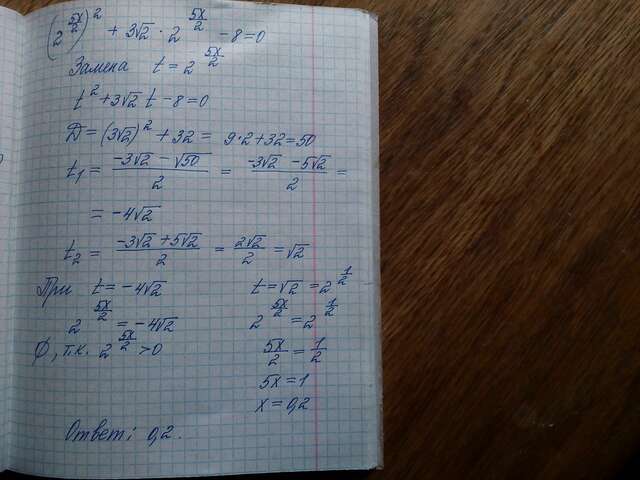 (2^(5x/2))² + 3√2 · 2^(5x/2) − 8 = 0
Замена t = 2^(5x/2)
t² + 3√2 t − 8 = 0
D = (3√2)² + 32 = 9·2 + 32 = 50
t₁ = (−3√2 − √50)/2 = (−3√2 − 5√2)/2 =
= −4√2
t₂ = (−3√2 + 5√2)/2 = 2√2/2 = √2
При t = −4√2
2^(5x/2) = −4√2
∅, т.к. 2^(5x/2) > 0
t = √2 = 2^(1/2)
2^(5x/2) = 2^(1/2)
5x/2 = 1/2
5x = 1
x = 0,2
Ответ: 0,2.